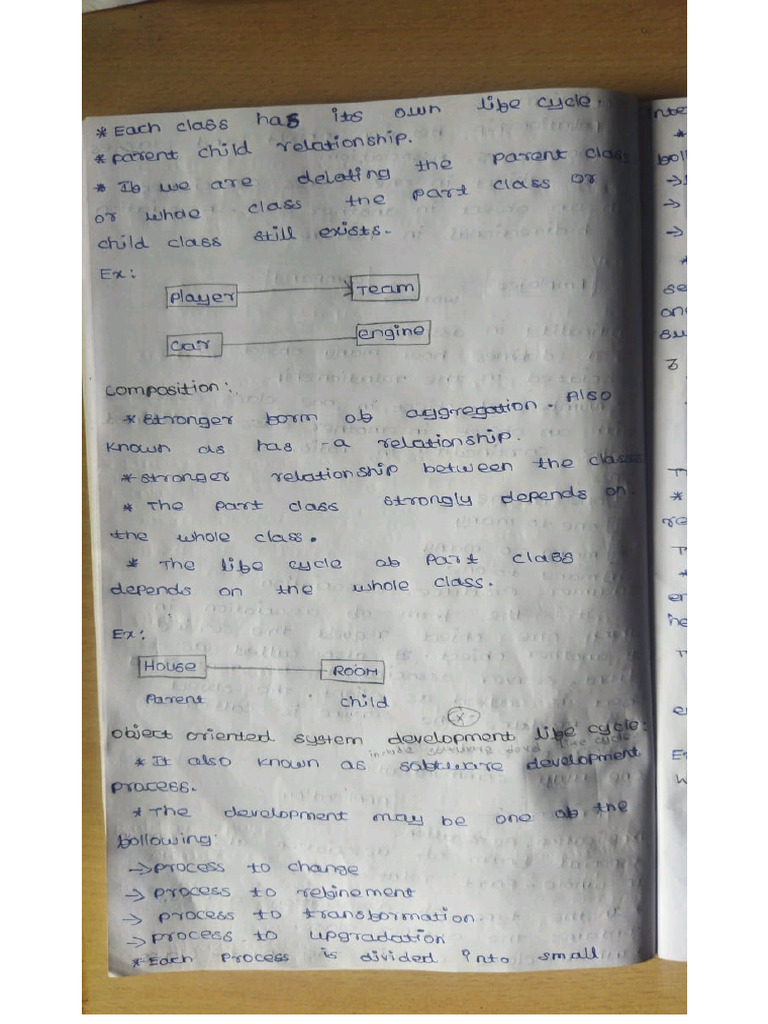 * Each class has its own life cycle.
* parent child relationship.
* If we are delating the parent class
or whole class the part class or
child class still exists.
Ex:
Player Team
Car engine
Composition:
* stronger form of aggregation. Also
known as has-a relationship.
* stronger relationship between the classes
* The part class strongly depends on
the whole class.
* The life cycle of part class
depends on the whole class.
Ex:
House ROOM
Parent child
object oriented system development life cycle:
include software
* It also known as software development
process.
* The development may be one of the
following:
→ process to change
→ process to refinement
→ process to transformation.
→ process to upgradation
* Each process is divided into small
Inte
*
foll
→
→
→
*
se
one
su
3
T
*
re
T
*
er
he
T
e
E
w